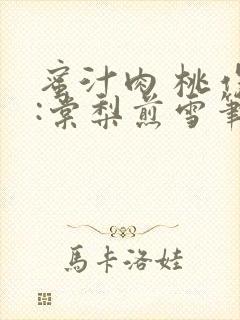 蜜汁肉桃
:棠梨煎雪
馬卡洛娃